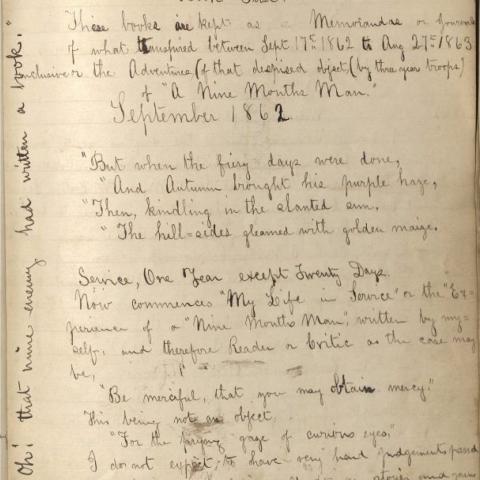 These books are kept as a Memorandas or Journals
of what transpired between Sept 17th 1862 to Aug 27th 1863
inclusive or the Adventures (of that despised object, (by three year troops)
of "A Nine Months Man."
September 1862
"But when the fiery days were done,
"And Autumn brought his purple haze,
"Then, kindling in the slanted sun,
"The hill=sides gleamed with golden maize.
Service, One Year except Twenty Days.
Now commences "My Life in Service" or the "Ex=
perience of a "Nine Months Man", written by my=
self, and therefore Reader or Critic as the case may
be,
"Be merciful, that you may obtain mercy."
This being not an object
"For the prying gaze of curious eyes,"
I do not expect, to have very hard judgements passed
stories and
Oh! that mine enemy had written a book."